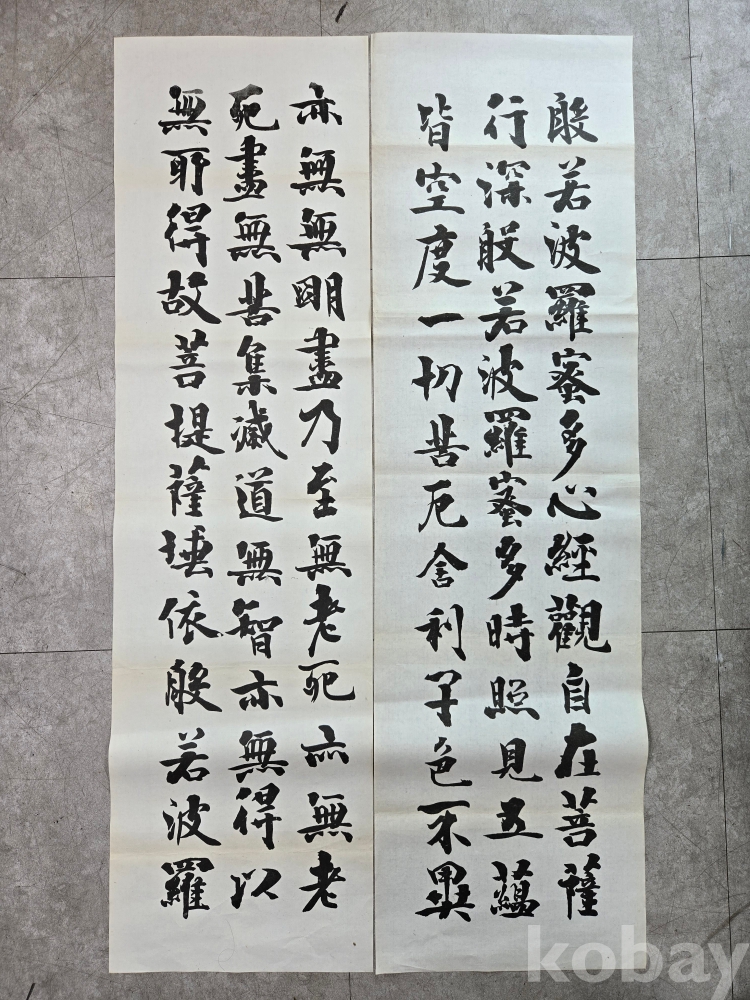 般若波羅蜜多心經觀自在菩薩
行深般若波羅蜜多時照見五蘊
皆空度一切苦厄舍利子色不異
亦無無明盡乃至無老死亦無老
死盡無苦集滅道無智亦無得以
無所得故菩提薩埵依般若波羅
kobay